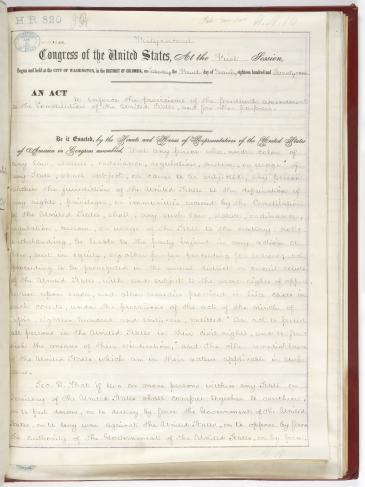 H R 320
Forty-second
Congress of the United States, At the First Session,
Begun and held at the CITY OF WASHINGTON, in the DISTRICT OF COLUMBIA, on Saturday the Fourth day of March, eighteen hundred and Seventy-one.
AN ACT
To enforce the provisions of the fourteenth amendment
to the Constitution of the United States, and for other purposes.
Be it Enacted, by the Senate and House of Representatives of the United States
of America in Congress assembled, That any person who, under color of
any law, statute, ordinance, regulation, custom, or usage of
any State, shall subject, or cause to be subjected, any person
within the jurisdiction of the United States to the deprivation of
any rights, privileges, or immunities secured by the Constitution
of the United States, shall, any such law, statute, ordinance,
regulation, custom, or usage of the State to the contrary notwith
withstanding, be liable to the party injured in any action at
law, suit in equity, or other proper proceeding for redress; such
proceeding to be prosecuted in the several district or circuit courts
of the United States, with and subject to the same rights of appeal,
review upon error, and other remedies provided in like cases in
such courts, under the provisions of the act of the ninth of
April, eighteen hundred and sixty-six, entitled "An act to protect
all persons in the United States in their civil rights, and to fur-
nish the means of their vindication;" and the other remedial laws
of the United States which are in their nature applicable in such
cases.
Sec. 2. That if two or more persons within any State or
Territory of the United States shall conspire together to overthrow,
or to put down, or to destroy by force the Government of the United
States, or to levy war against the United States, or to oppose by force
the authority of the Government of the United States, or by force,